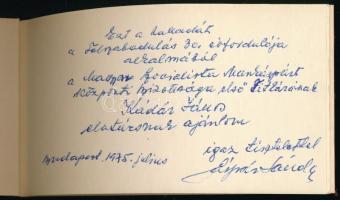 Ezt a
a Felszabadulás 30. évfordulója
alkalmából
a Magyar Szocialista Munkáspárt
Központi Bizottsága első Titkárának
Kádár János
elvtársnak ajánlom
igaz tisztelettel
Budapest, 1975. július
Sándor